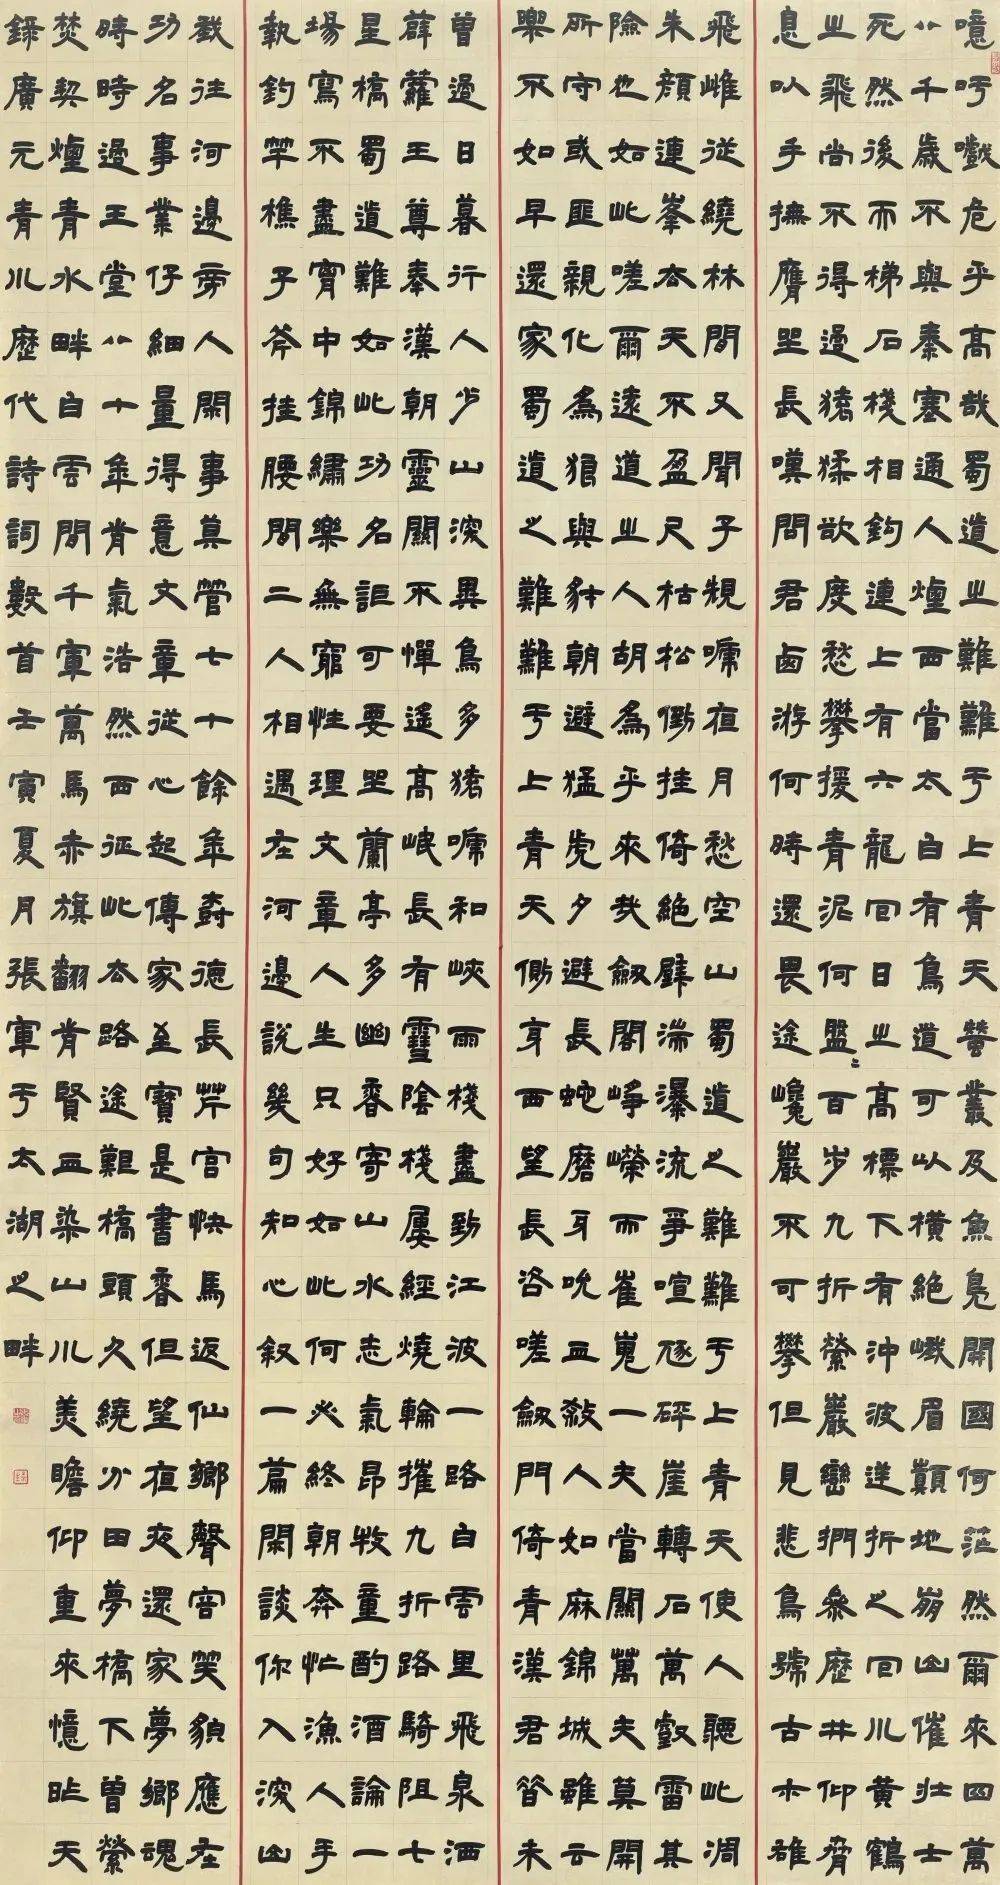 噫吁戲危乎高哉蜀道之難難于上青天蠶叢及魚鳧開國何茫然爾來四萬
八千歲不與秦塞通人煙西當太白有鳥道可以橫絕峨眉巔地崩山催壯士
死然後而梯石棧相鉤連上有六龍回日之高標下有沖波逆折之回川黃鶴
之飛尚不得過猿猱欲度愁攀援青泥何盤〻百步九折縈巖巒捫參歷井仰脅
息以手撫膺坐長嘆問君西游何時還畏途巉巖不可攀但見悲鳥號古木雄
飛雌從繞林間又聞子規啼夜月愁空山蜀道之難難于上青天使人聽此凋
朱顏連峯去天不盈尺枯松倒挂倚絕壁湍瀑流爭喧豗砯崖轉石萬壑雷其
險也如此嗟爾遠道之人胡為乎來哉劍閣崢嶸而崔嵬一夫當關萬夫莫開
所守或匪親化為狼與豺朝避猛虎夕避長蛇磨牙吮血殺人如麻錦城雖云
樂不如早還家蜀道之難難于上青天側身西望長咨嗟劍門倚青漢君昔未
曾過日暮行人少山深異鳥多猿啼和峽雨棧盡到江波一路白雲里飛泉洒
薜蘿王尊奉漢朝靈關不憚遙高岷長有雪陰棧屢經燒輪摧九折路騎阻七
星橋蜀道難如此功名詎可要坐蘭亭多幽香寄山水志氣昂牧童酌酒論一
場寫不盡宵中錦繡樂無窮性理文章人生只好如此何必終朝奔忙漁人手
執釣竿樵子斧挂腰間二人相遇在河邊說幾句知心敘一篇閑談你入深山
我往河邊旁人閑事莫管七十餘年壽德長芹宮快馬返仙鄉聲容笑貌應在
功名事業仔細量得意文章從心起傳家至寶是書香但望夜夜還家夢鄉魂
時時過玉堂八十年前氣浩然西征此去路途難橋頭久繞分田夢橋下曾縈
焚契煙青水畔白雲間千軍萬馬赤旗翻前賢血染山川美瞻仰重來憶昨天
錄廣元青川歷代詩詞數首壬寅夏月張軍于太湖之畔